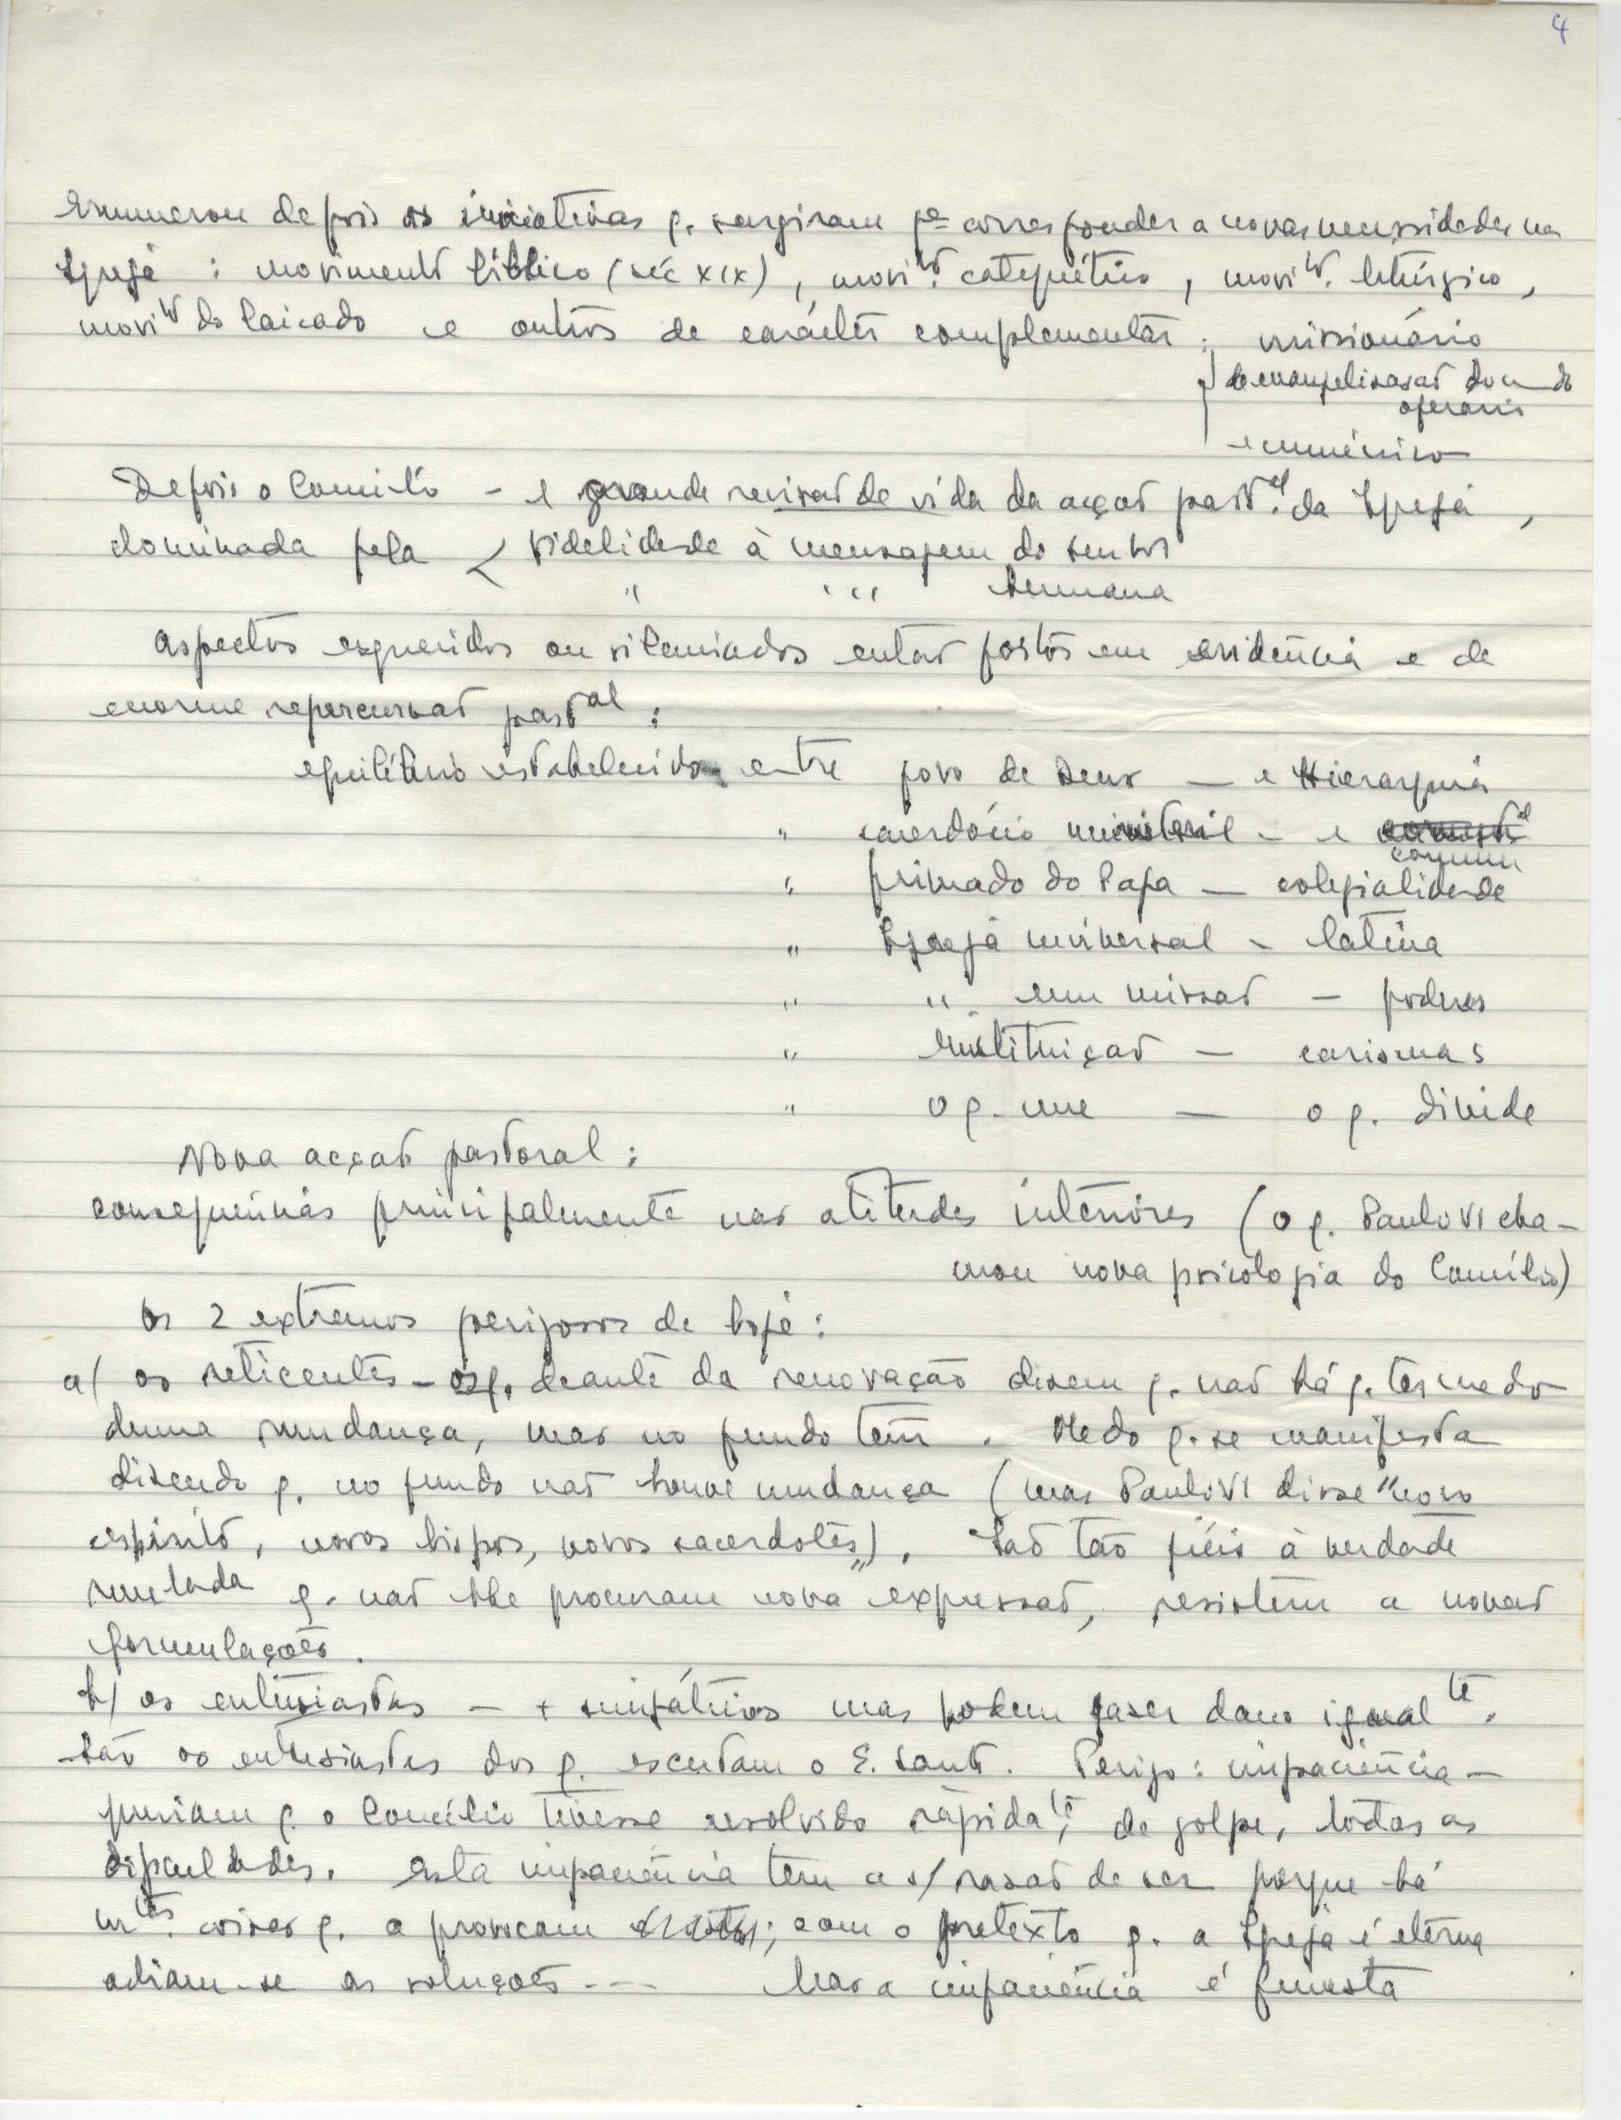 4
Enumerou depois as iniciativas q. surgiram pª corresponder a novas necessidades na
Igreja : movimento bíblico (séc XIX), movitº. catequético, movitº. litúrgico,
movitº do laicado e outros de carácter complementar : missionário
de evangelização do mdo
operário
ecuménico
Depois o Concílio - e grande revisão de vida da acção pastal. da Igreja,
dominada pela < fidelidade à mensagem do Senhor
" " " humana
Aspectos esquecidos ou silenciados então postos em evidência e de
enorme repercussão pastal :
equilíbrio estabelecido entre povo de Deus — e Hierarquia
" sacerdócio ministerial - e
comum
" primado do Papa — colegialidade
" Igreja universal - latina
" " em missão - poderes
" Instituição — carismas
" o q. une — o q. divide
Nova acção pastoral :
consequências principalmente nas atitudes interiores (o q. Paulo VI cha-
mou nova psicologia do Concílio)
Os 2 extremos perigosos de hoje :
a/ os reticentes - os q. deante da renovação dizem q. não há q. ter medo
duma mudança, mas no fundo têm. Medo q. se manifesta
dizendo q. no fundo não houve mudança (mas Paulo VI disse "novo
espírito, novos bispos, novos sacerdotes"). São tão fiéis à verdade
revelada q. não lhe procuram nova expressão, resistem a novas
formulações.
b/ os entusiastas - + simpáticos mas podem fazer dano igualte.
São os entusiastas dos q. escutam o E. Santo. Perigo : impaciência -
queriam q. o Concílio tivesse resolvido ràpidate, de golpe, todas as
dificuldades. Esta impaciência tem a s/ razão de ser porque há
mtas. coisas q. a provocam ; com o pretexto q. a Igreja é eterna
adiam-se as soluções --- Mas a impaciência é funesta